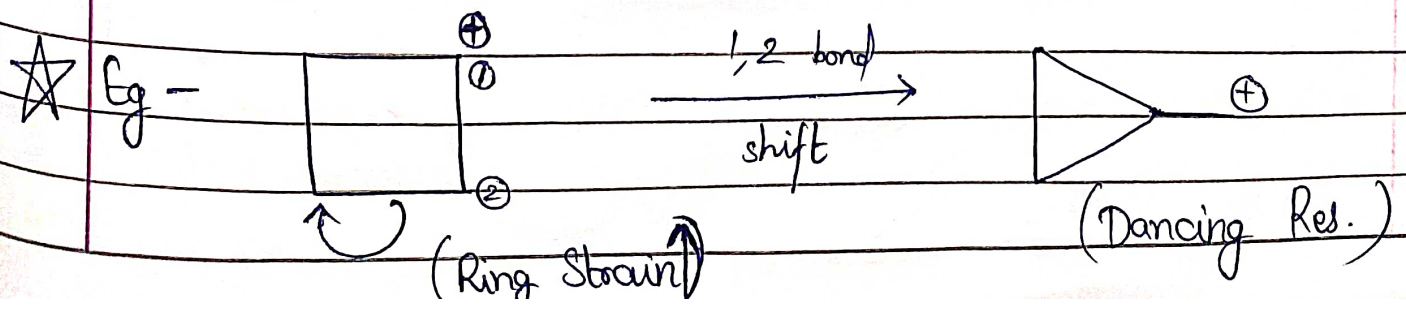 ⊕
Eg -
①
1,2 bond
shift
⊕
②
(Ring Strain↑)
(Dancing Res.)